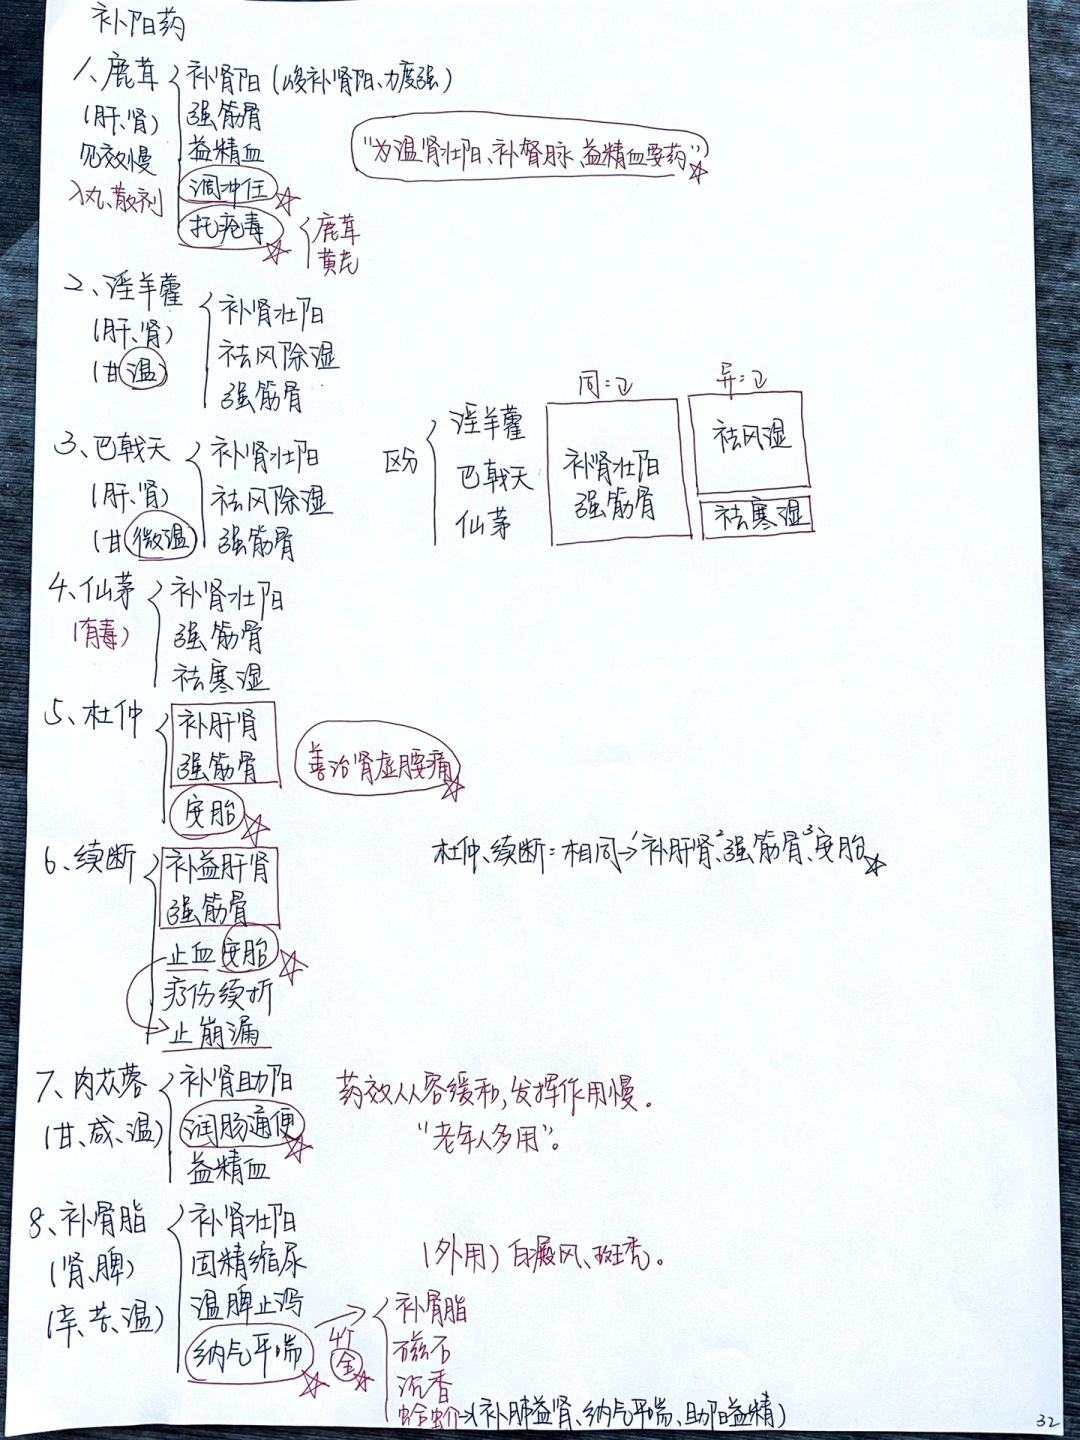 补阳药
1、鹿茸 补肾阳(峻补肾阳、力度强)
(肝、肾) 强筋骨
见效慢 益精血
"为温肾壮阳、补督脉、益精血要药"
入丸、散剂 调冲任
托疮毒 鹿茸
黄芪
2、淫羊藿 补肾壮阳
(肝、肾) 祛风除湿
(甘温) 强筋骨
3、巴戟天 补肾壮阳
(肝、肾) 祛风除湿
(甘微温) 强筋骨
同:卫 异:卫
区分 淫羊藿 巴戟天 仙茅
补肾壮阳
强筋骨
祛风湿
祛寒湿
4、仙茅 补肾壮阳
(有毒) 强筋骨
祛寒湿
5、杜仲 补肝肾
强筋骨 善治肾虚腰痛
安胎
6、续断 补益肝肾
强筋骨
杜仲、续断:相同→1补肝肾、2强筋骨、3安胎
止血安胎
疗伤续折
止崩漏
7、肉苁蓉 补肾助阳
(甘、咸、温) 润肠通便
益精血
药效从容缓和,发挥作用慢。
"老年人多用"。
8、补骨脂 补肾壮阳
(肾、脾) 固精缩尿
(辛、苦、温) 温脾止泻
纳气平喘
(外用)白癜风、斑秃。
4个
金
补骨脂
磁石
沉香
蛤蚧→(补肺益肾、纳气平喘、助阳益精)
32